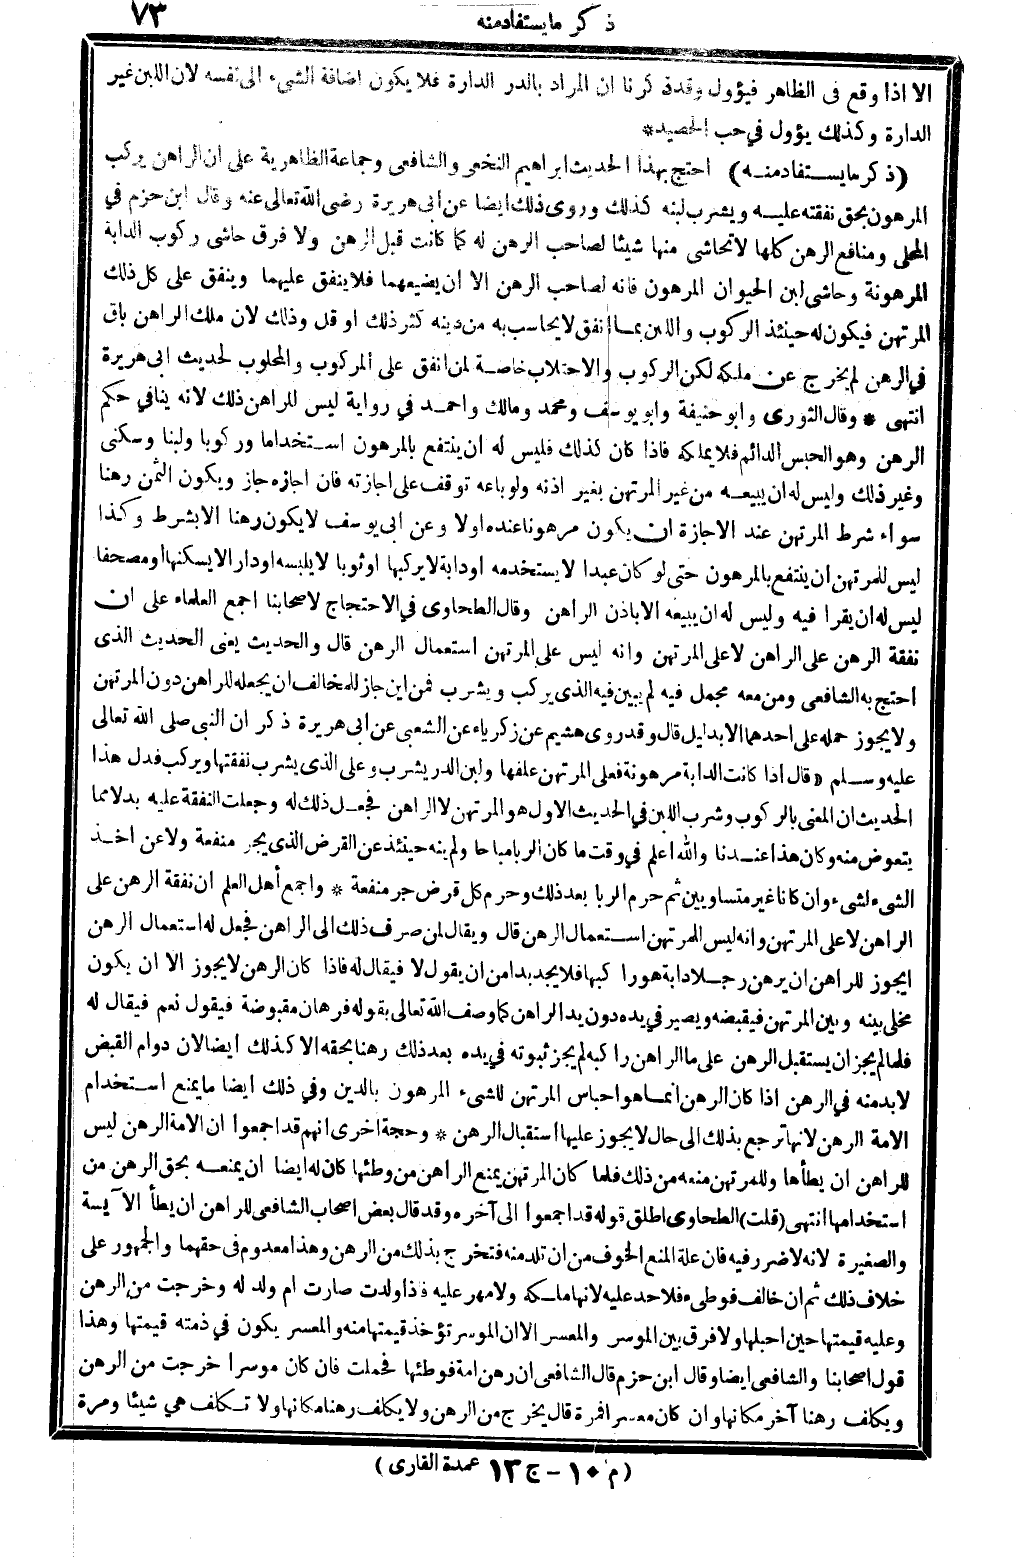 ٧٣
ذكر مايستفادمنه
الا اذا وقع فى الظاهر فيؤول وقدذكرنا ان المراد بالدر الدارة فلا يكون اضافة الشىء الى نفسه لان اللبن غير
الدارة وكذلك يؤول في حب الحصيد*
(ذكر مايستفادمنه) احتج بهذا الحديث ابراهيم النخعى والشافعى وجماعة الظاهرية على ان الراهن يركب
المرهون بحق نفقته عليه ويشرب لبنه كذلك وروى ذلك ايضا عن ابى هريرة رضى الله تعالى عنه وقال ابن حزم في
المحلى ومنافع الرهن كلها لا تحاشى منها شيئا لصاحب الرهن له كما كانت قبل الرهن ولا فرق حاشى ركوب الدابة
المرهونة وحاشى لبن الحيوان المرهون فانه لصاحب الرهن الا ان يضيعهما فلاينفق عليهما وينفق على كل ذلك
المرتهن فيكون له حينئذ الركوب واللبن بما انفق لايحاسب به من دينه كثر ذلك او قل وذلك لان ملك الراهن باق
في الرهن لم يخرج عن ملكه لكن الركوب والاحتلاب خاصة لمن انفق على المركوب والمحلوب لحديث ابى هريرة
انتهى * وقال الثورى وابو حنيفة وابو يوسف ومحمد ومالك واحمد في رواية ليس للراهن ذلك لانه ينافي حكم
الرهن وهو الحبس الدائم فلا يملكه فاذا كان كذلك فليس له ان ينتفع بالمرهون استخداما وركوبا ولبنا وسكنى
وغير ذلك وليس له ان يبيعه من غير المرتهن بغير اذنه ولو باعه توقف على اجازته فان اجازه جاز ويكون الثمن رهنا
سواء شرط المرتهن عند الاجازة ان يكون مرهونا عنده اولا وعن ابى يوسف لا يكون رهنا الا بشرط وكذا
ليس للمرتهن ان ينتفع بالمرهون حتى لو كان عبدا لا يستخدمه اودابة لا يركبها اوثوبا لا يلبسه اودار الا يسكنها او مصحفا
ليس له ان يقرا فيه وليس له ان يبيعه الا باذن الراهن وقال الطحاوى في الاحتجاج لاصحابنا اجمع العلماء على ان
نفقة الرهن على الراهن لا على المرتهن وانه ليس على المرتهن استعمال الرهن قال والحديث يعنى الحديث الذى
احتج به الشافعى ومن معه مجمل فيه لم يبين فيه الذى يركب ويشرب فمن اين جاز للمخالف ان يجعله للراهن دون المرتهن
ولا يجوز حمله على احدهما الا بدليل قال وقد روى هشيم عن زكرياء عن الشعبى عن ابى هريرة ذكر ان النبى صلى الله تعالى
عليه وسلم «قال اذا كانت الدابة مرهونة فعلى المرتهن علفها ولبن الدر يشرب وعلى الذى يشرب نفقتها ويركب فدل هذا
الحديث ان المعنى بالركوب وشرب اللبن في الحديث الاول هو المرتهن لا الراهن فجعل ذلك له وجعلت النفقة عليه بدلا مما
يتعوض منه وكان هذا عندنا والله اعلم في وقت ما كان الربا مباحا ولم ينه حينئذ عن القرض الذى يجر منفعة ولا عن اخذ
الشىء لشىء وان كانا غير متساويين ثم حرم الربا بعد ذلك وحرم كل قرض جر منفعة * واجمع أهل العلم ان نفقة الرهن على
الراهن لا على المرتهن وانه ليس للمرتهن استعمال الرهن قال ويقال لمن صرف ذلك الى الراهن فجعل له استعمال الرهن
ايجوز للراهن ان يرهن رجلا دابة هو راكبها فلا يجد بدا من ان يقول لا فيقال له فاذا كان الرهن لا يجوز الا ان يكون
مخلى بينه وبين المرتهن فيقبضه ويصير في يده دون يد الراهن كما وصف الله تعالى بقوله فرهان مقبوضة فيقول نعم فيقال له
فلما لم يجز ان يستقبل الرهن على ما الراهن راكبه لم يجز ثبوته في يده بعد ذلك رهنا بحقه الا كذلك ايضا لان دوام القبض
لا بد منه في الرهن اذا كان الرهن انما هو احباس المرتهن للشىء المرهون بالدين وفي ذلك ايضا ما يمنع استخدام
الامة الرهن لانها ترجع بذلك الى حال لا يجوز عليها استقبال الرهن * وحجة اخرى انهم قد اجمعوا ان الامة الرهن ليس
للراهن ان يطأها وللمرتهن منعه من ذلك فلما كان المرتهن يمنع الراهن من وطئها كان له ايضا ان يمنعه بحق الرهن من
استخدامها انتهى (قلت) الطحاوى اطلق قوله قد اجمعوا الى آخره وقد قال بعض اصحاب الشافعى للراهن ان يطأ الآيسة
والصغيرة لانه لا ضرر فيه فان علة المنع الخوف من ان تلد منه فتخرج بذلك من الرهن وهذا معدوم فى حقهما والجمهور على
خلاف ذلك ثم ان خالف فوطىء فلا حد عليه لانها ملكه ولا مهر عليه فاذا ولدت صارت ام ولد له وخرجت من الرهن
وعليه قيمتها حين احبلها ولا فرق بين الموسر والمعسر الا ان الموسر تؤخذ قيمتها منه والمعسر يكون في ذمته قيمتها وهذا
قول اصحابنا والشافعى ايضا وقال ابن حزم قال الشافعى ان رهن امة فوطئها فحملت فان كان موسرا خرجت من الرهن
ويكلف رهنا آخر مكانها وان كان معسرا فمرة قال يخرج من الرهن ولا يكلف رهنا مكانها ولا تكلف هي شيئا ومرة
(م ١٠ - ج ١٣ عمدة القارى)